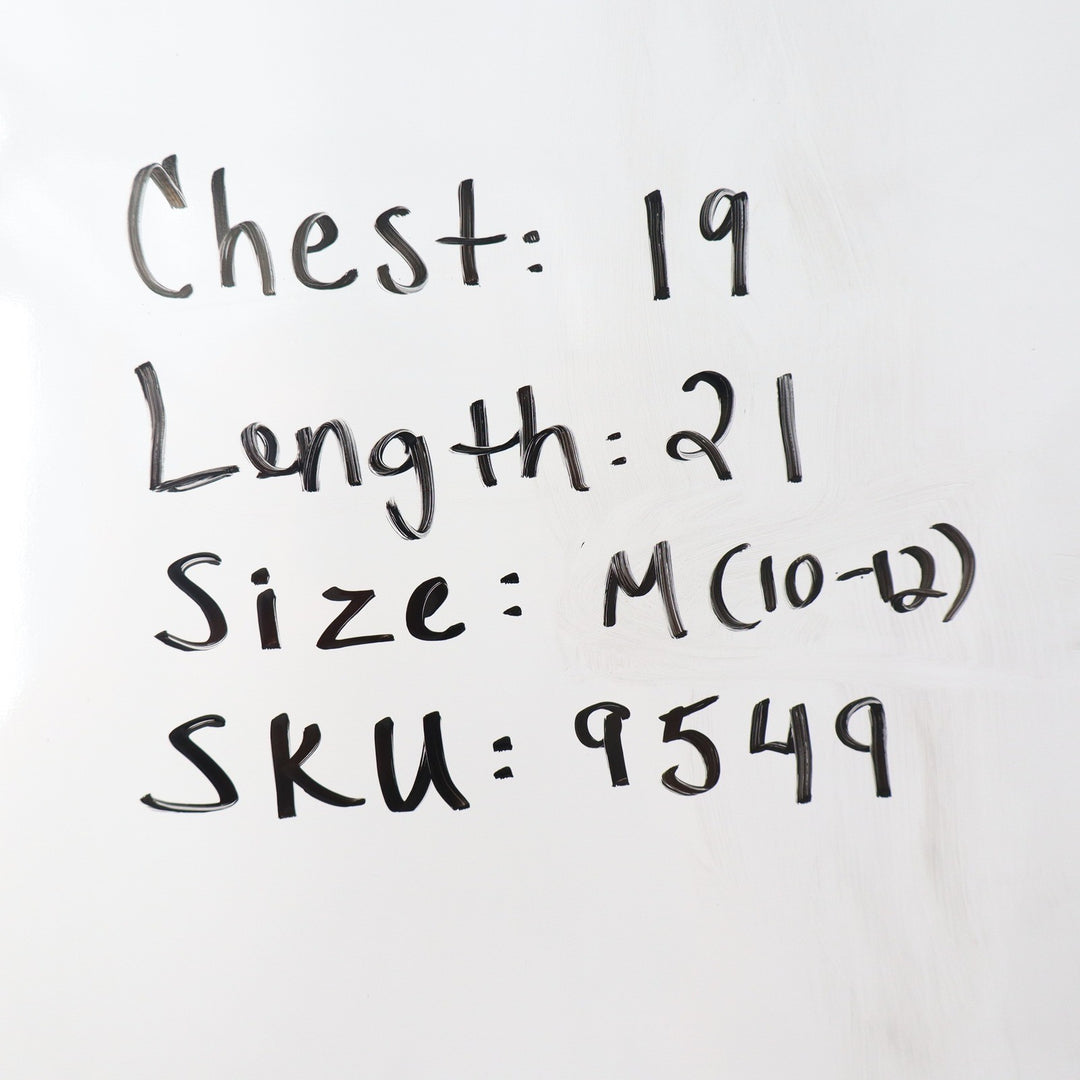 Chest: 19
Length: 21
Size: M (10-12)
SKU: 9549